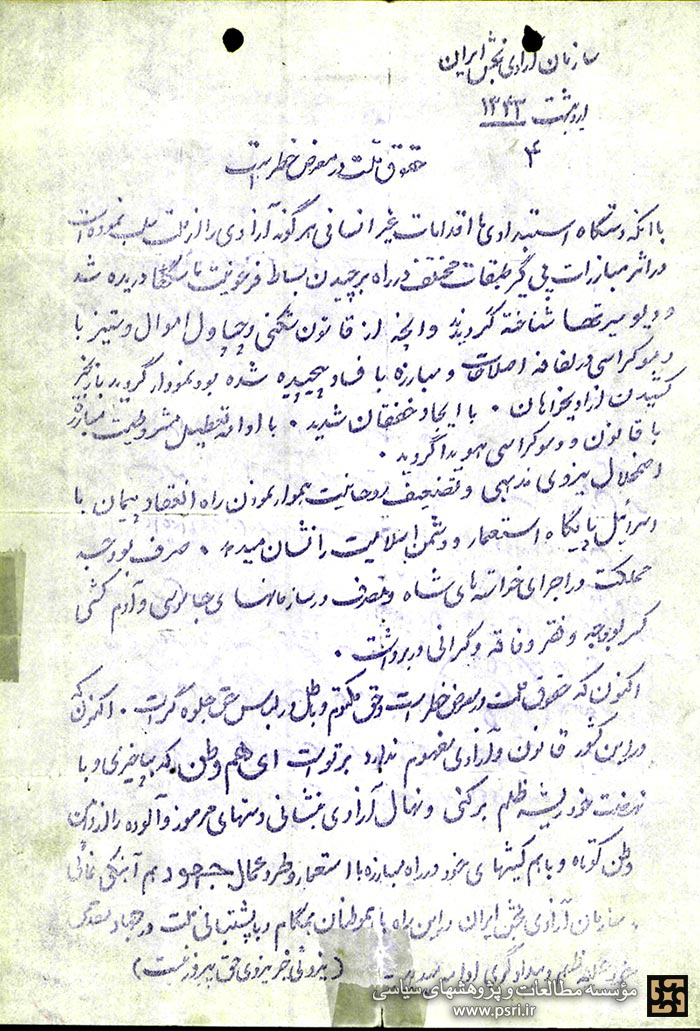 سازمان آزادی بخش ایران
اردیبهشت ۱۳۴۳
۴
حقوق ملت در معرض خطر است
با آنکه دستگاه استبدادی با اقدامات غیر انسانی هرگونه آزادی را از ملت سلب نموده است
در اثر مبارزات پی گیر طبقات مختلف در راه برچیدن بساط فرعونیت ماسکها دریده شد
و دیو سیرتها شناخته گردیدند و آنچه از قانون شکنی و چپاول اموال و ستیز با
دموکراسی در لفافه اصلاحات و مبارزه با فساد پیچیده شده بود نمودار گردید با زنجیر
کشیدن آزادیخواهان . با ایجاد خفقان شدید . با ادامه تعطیل مشروطیت مبارزه
با قانون و دموکراسی هویدا گردید .
اضمحلال نیروی مذهبی و تضعیف روحانیت هموار نمودن راه انعقاد پیمان با
اسرائیل پایگاه استعمار و دشمن اسلامیت را نشان میدهد . صرف بودجه
مملکت در اجرای خواسته های شاه و مصرف در سازمانهای جاسوسی و آدم کشی
کسر بودجه و فقر و فاقه و گرانی در برداشت .
اکنون که حقوق ملت در معرض خطر است و حق مکتوم و باطل در لباس حق جلوه گر است . اکنون که
در این کشور قانون و آزادی مفهوم ندارد بر تو است ای هم وطن که بپاخیزی و با
نهضت خود ریشه ظلم برکنی و نهال آزادی بنشانی دستهای مرموز و آلوده را از دامن
وطن کوتاه و با هم کیشهای خود در راه مبارزه با استعمار و طرد عمال جهود هم آهنگی نمائی
. سازمان آزادی بخش ایران در این راه با هموطنان همگام و با پشتیبانی ملت در جهاد مقدس
ظلم و بیدادگری ادامه میدهد (بنزوئی خر نیروی حق پیروز است)
مؤسسه مطالعات و پژوهشهای سیاسی
www.psri.ir